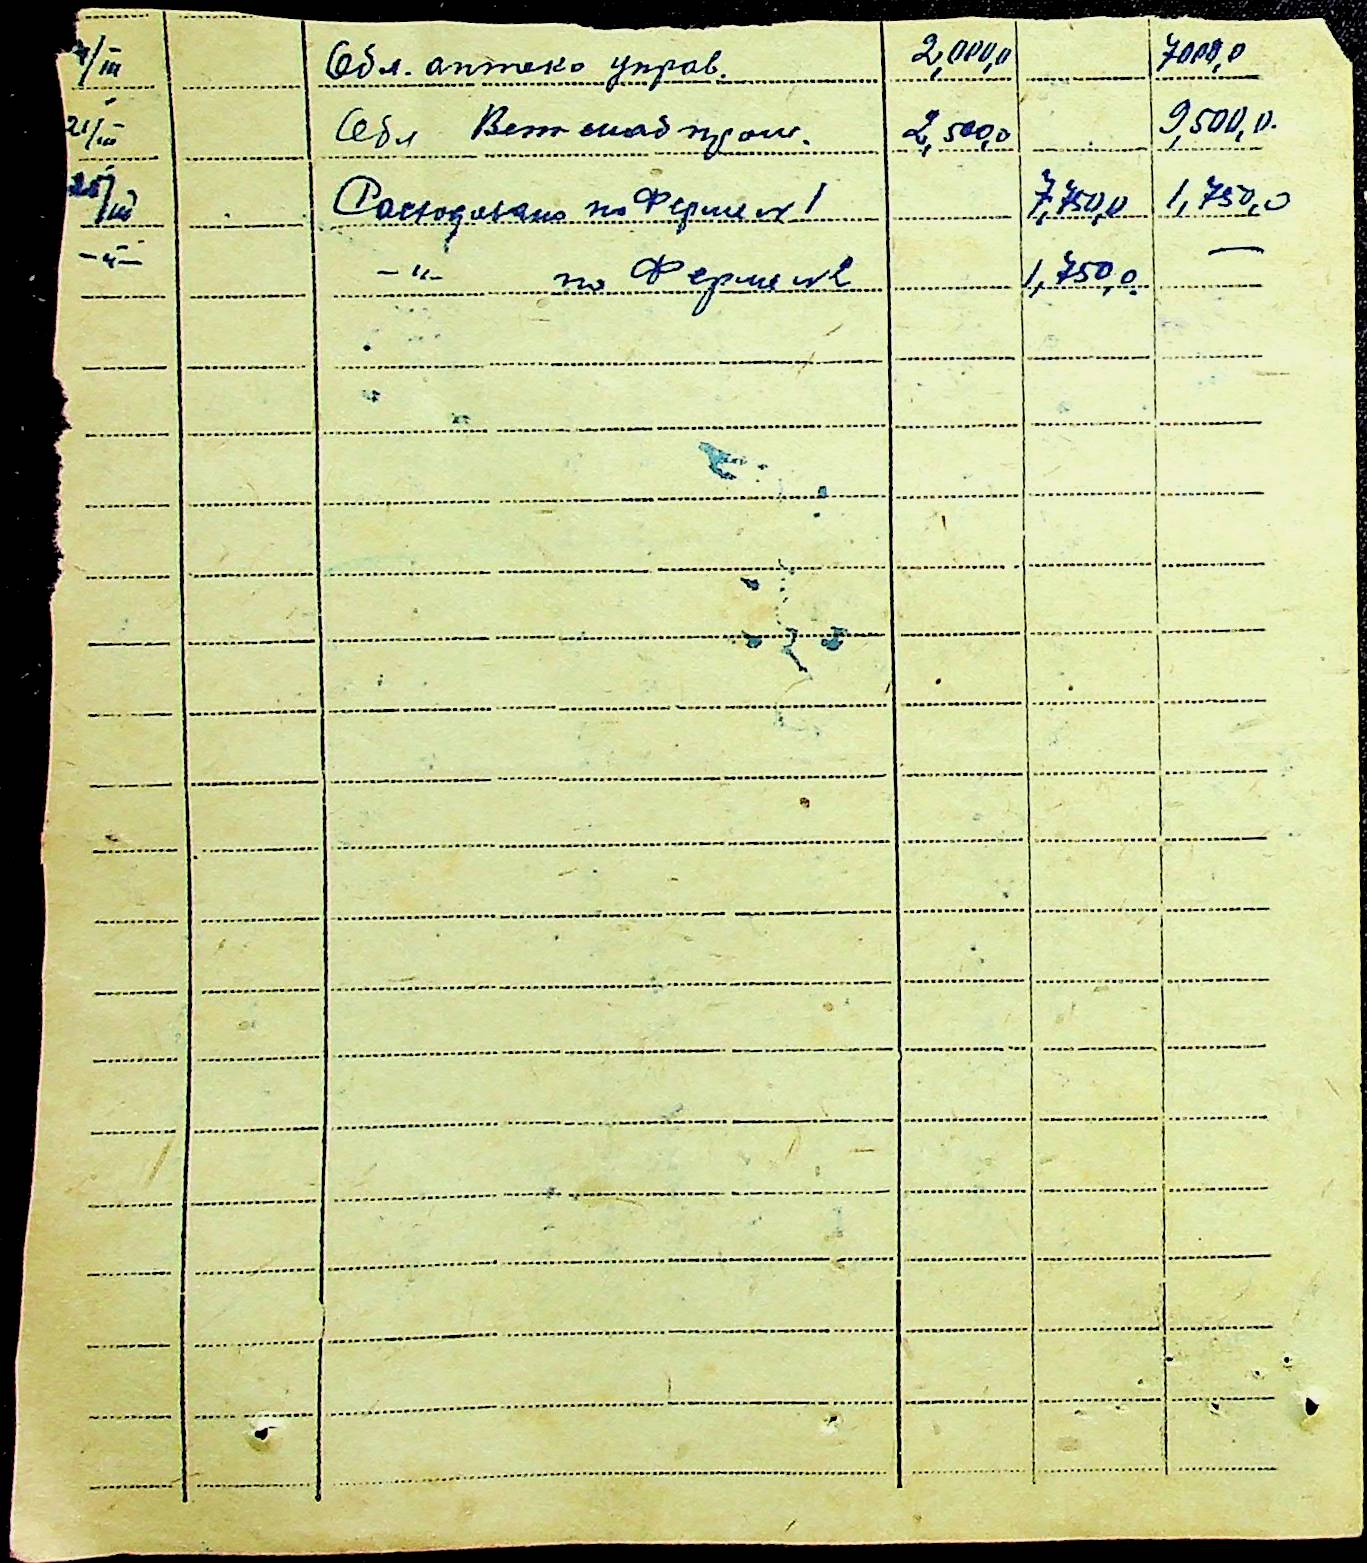 /III Обл. аптеко управ. 2,000,0 7000,0
21/III Обл Ветснабпром. 2,500,0 9,500,0.
25/III Расходовано по Ферме №1 7,750,0 1,750,0
-"- -"- по Ферме №2 1,750,0. —